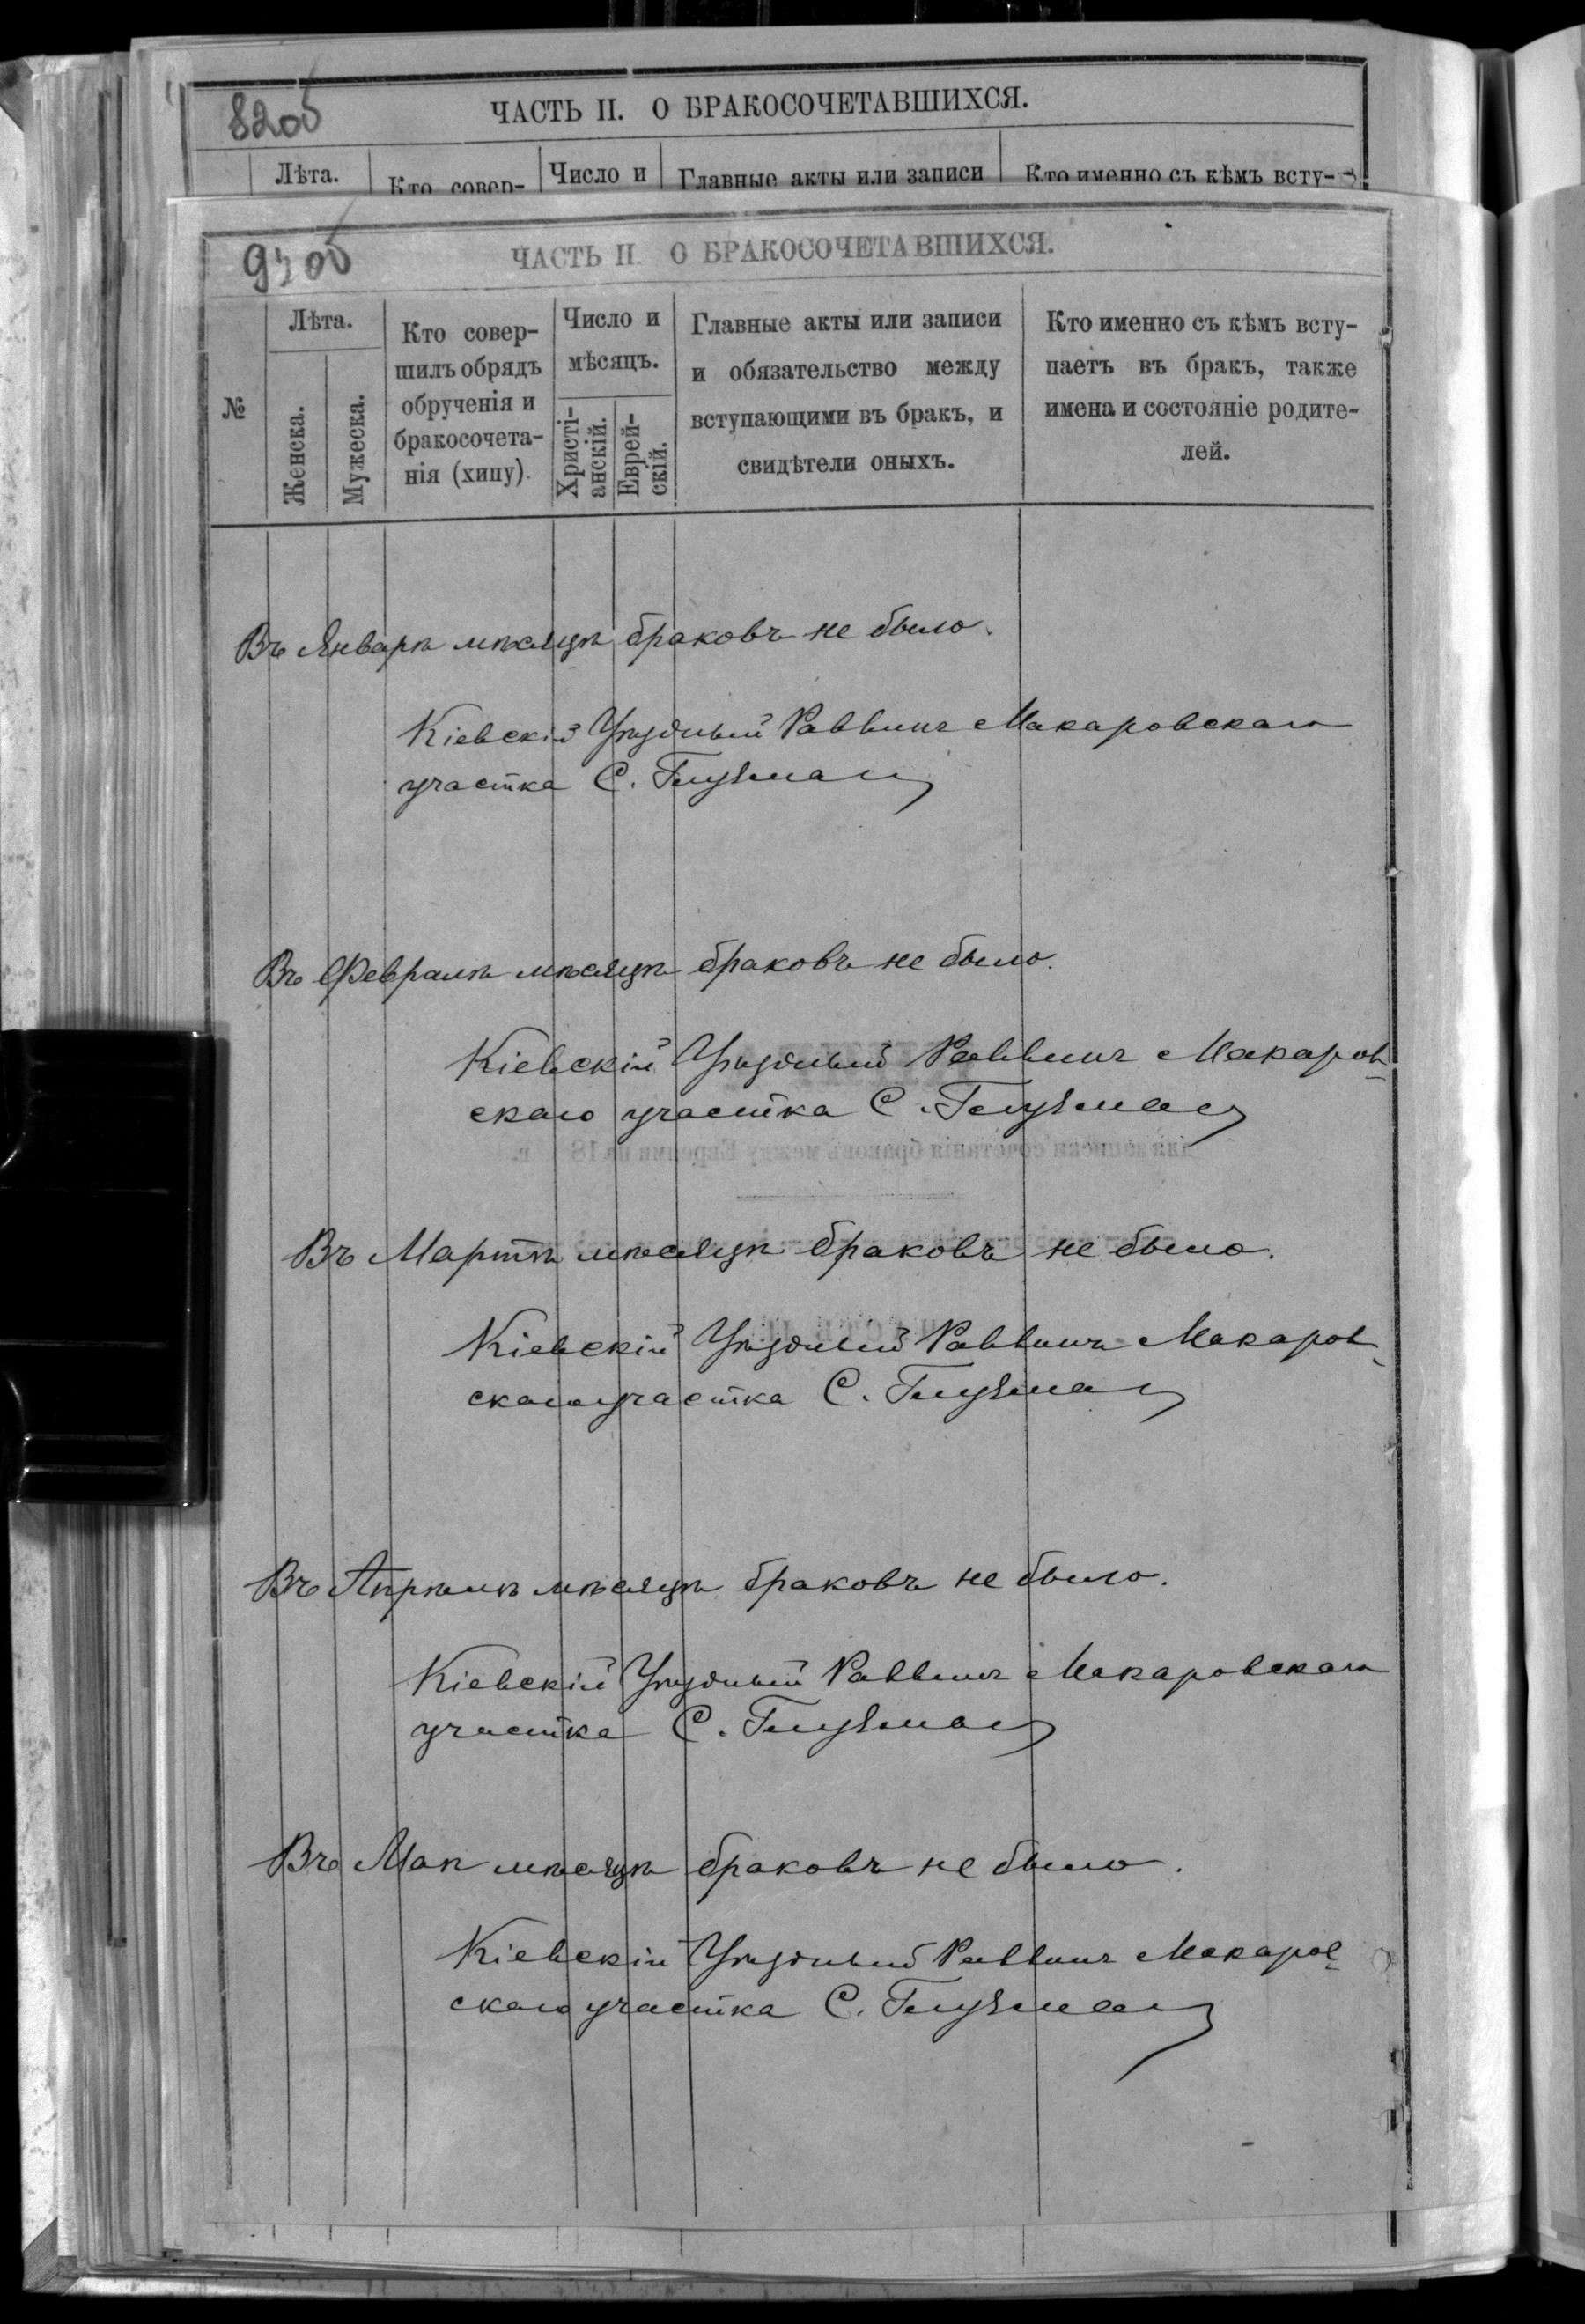 8200б
ЧАСТЬ II. О БРАКОСОЧЕТАВШИХСЯ.
Лѣта.
Кто совер-
Число и
Главные акты или записи
Кто именно съ кѣмъ всту-
ЧАСТЬ II. О БРАКОСОЧЕТАВШИХСЯ.
№
Лѣта.
Женска.
Мужеска.
Кто совер-
шилъ обрядъ
обрученія и
бракосочета-
нія (хипу).
Число и
мѣсяцъ.
Христі-
анскій.
Еврей-
скій.
Главные акты или записи
и обязательство между
вступающими въ бракъ, и
свидѣтели оныхъ.
Кто именно съ кѣмъ всту-
паетъ въ бракъ, также
имена и состояніе родите-
лей.
Въ Январѣ мѣсяцѣ браковъ не было.
Кіевскій Уѣздный Раввинъ Макаровскаго
участка С. Глузман
Въ Февралѣ мѣсяцѣ браковъ не было.
Кіевскій Уѣздный Раввинъ Макаров-
скаго участка С. Глузман
Въ Мартѣ мѣсяцѣ браковъ не было.
Кіевскій Уѣздный Раввинъ Макаров-
скаго участка С. Глузман
Въ Апрѣлѣ мѣсяцѣ браковъ не было.
Кіевскій Уѣздный Раввинъ Макаровскаго
участка С. Глузман
Въ Маѣ мѣсяцѣ браковъ не было.
Кіевскій Уѣздный Раввинъ Макаров-
скаго участка С. Глузман